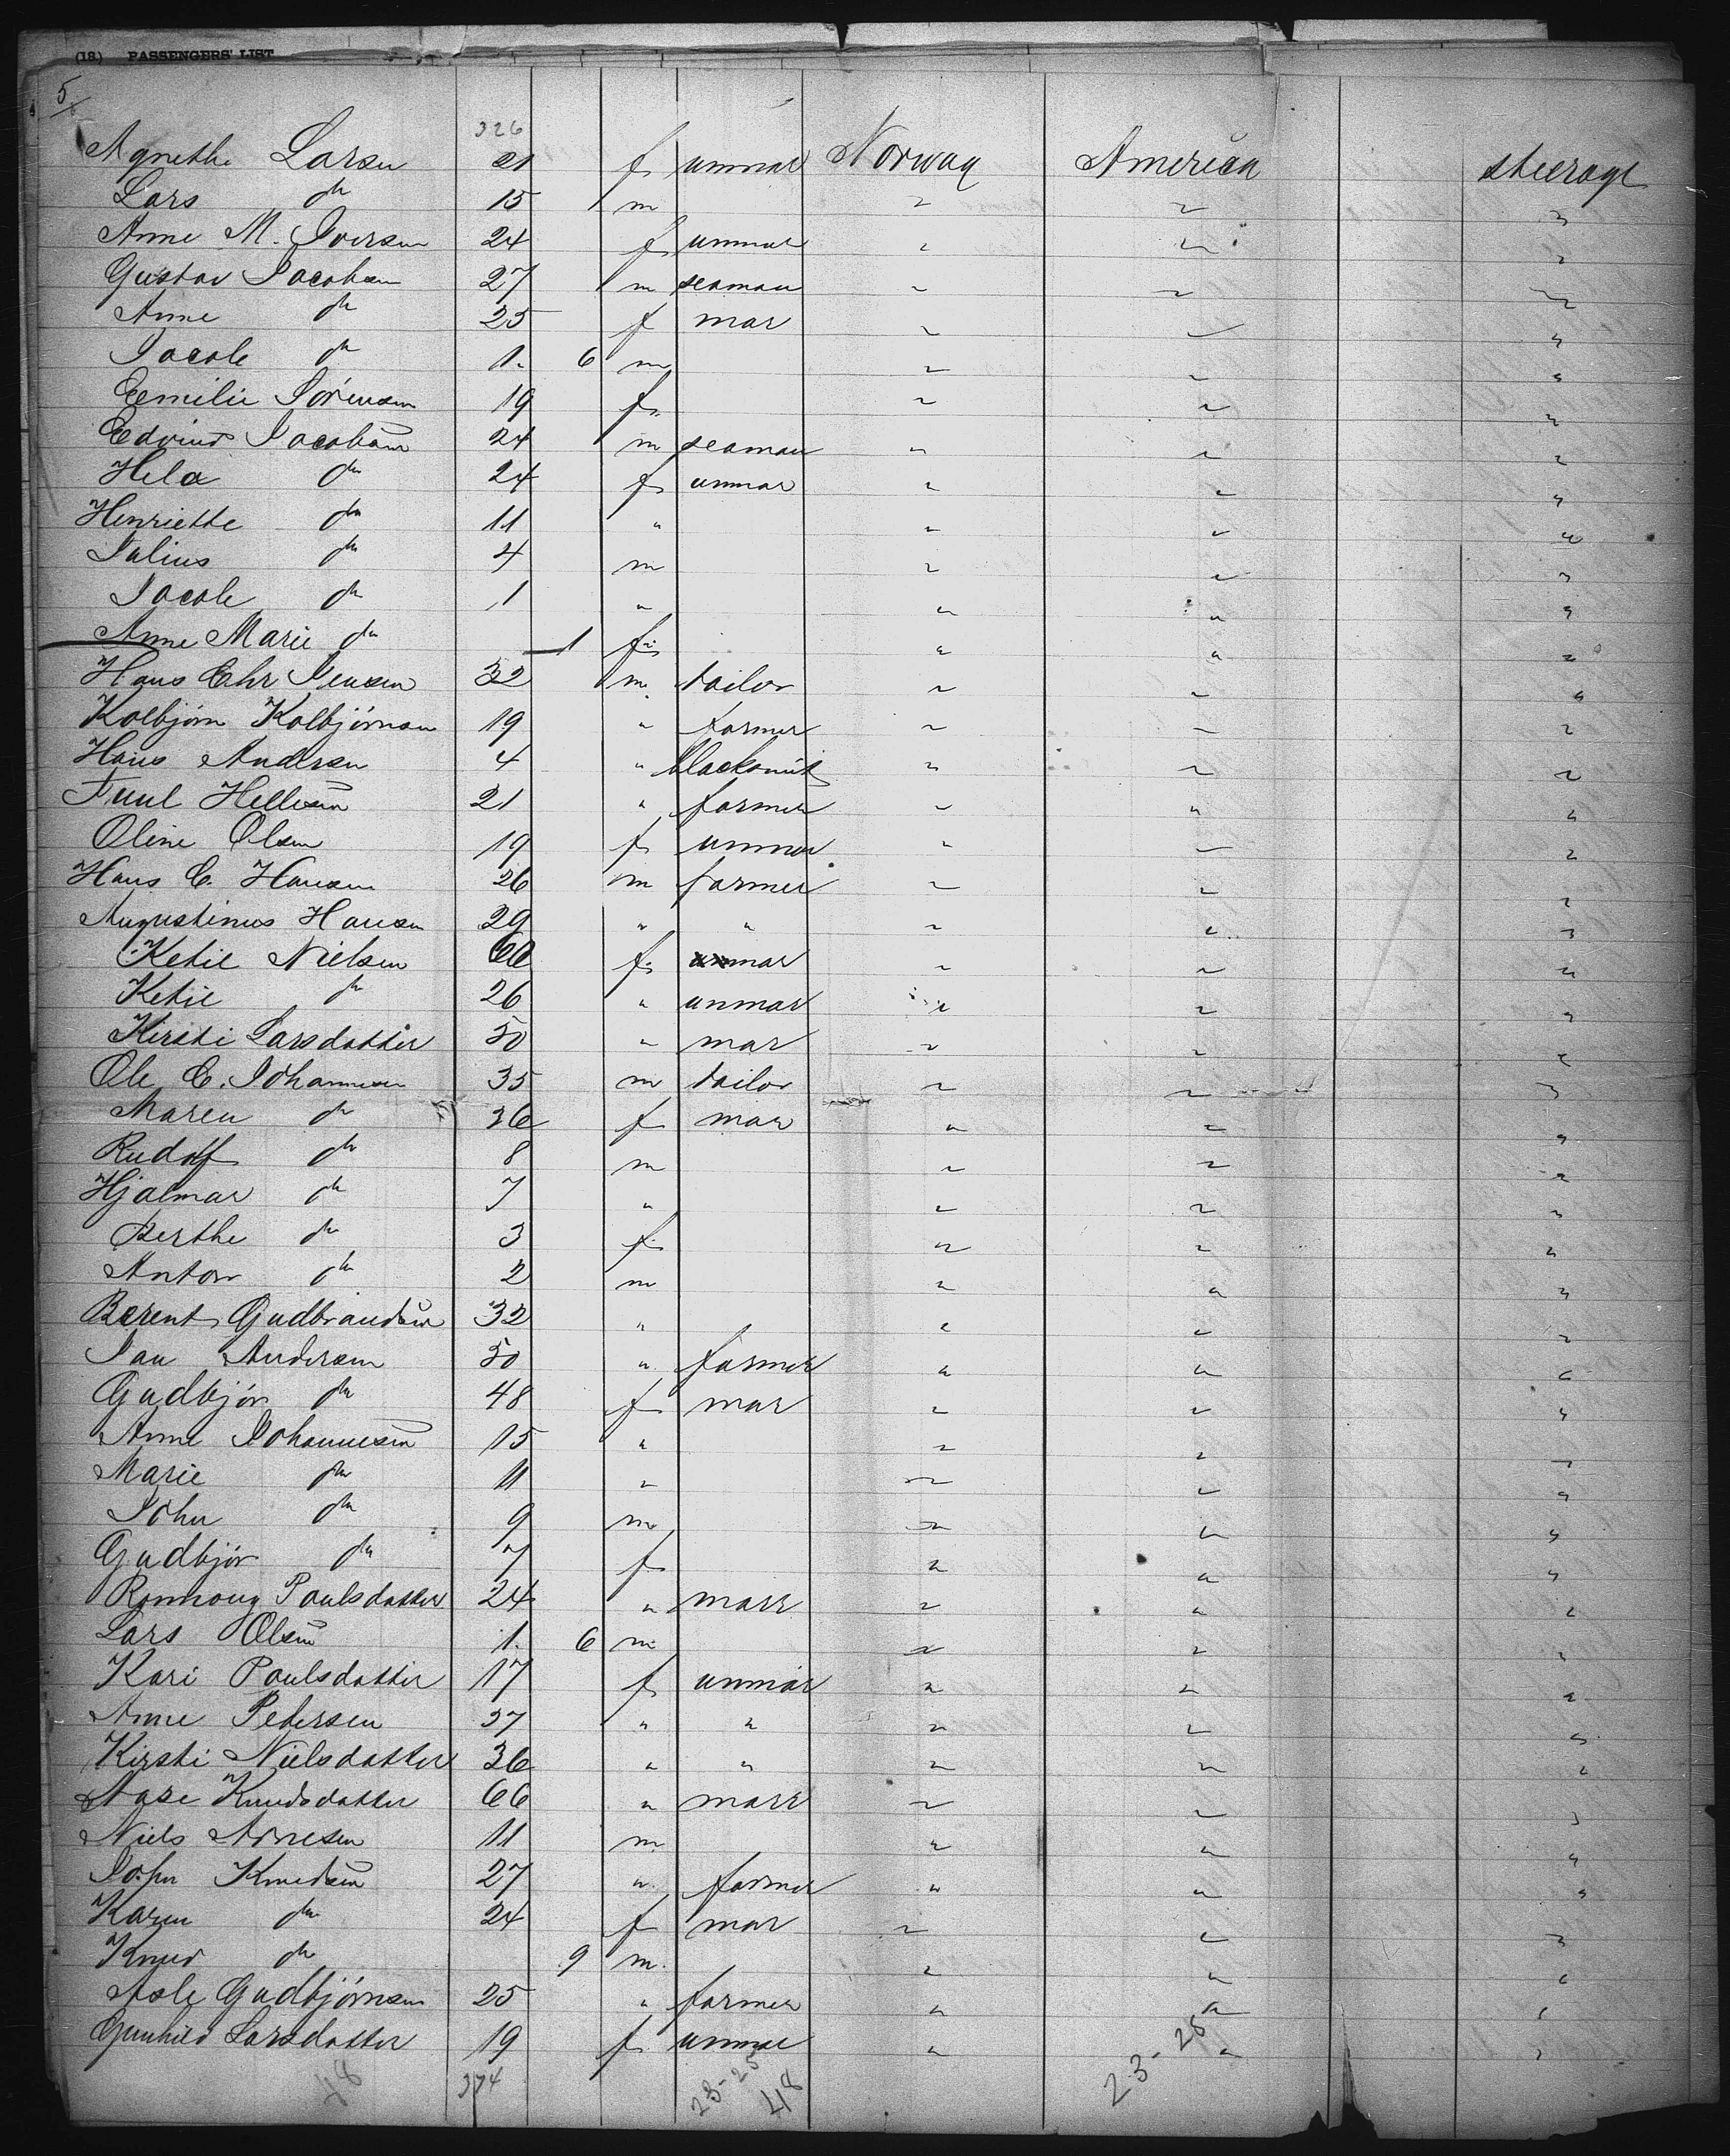 (18) PASSENGERS' LIST
5/
326
Agnethe Larsen 21 f unmar Norway America steerage
Lars do 15 m " " "
Anne M. Iversen 24 f unmar " " "
Gustav Jacobsen 27 m seaman " " "
Anne do 25 f mar " " "
Jacob do 1. 6 m " " "
Emilie Sörensen 19 f. " " "
Edvind Jacobsen 24 m seaman " " "
Hela do 24 f unmar " " "
Henriette do 11 " " " "
Julius do 4 m " " "
Jacob do 1 " " " "
Anne Marie do 1 f " " "
Hans Chr Jensen 32 m. tailor " " "
Kolbjörn Kolbjörnsen 19 " farmer " " "
Hans Andersen 4 " blacksmit " " "
Hellesen 21 " farmer " " "
Oline Olsen 19 f unmar " " "
Hans C. Hansen 26 m farmer " " "
Augustinus Hansen 29 " " " " "
Ketil Nielsen 60 f mar " " "
Ketil do 26 " unmar " " "
Kirsti Larsdatter 50 " mar " " "
Ole C. Johannesen 35 m tailor " " "
Maren do 36 f mar " " "
Rudolf do 8 m " " "
Hjalmar do 7 " " " "
Berthe do 3 f " " "
Anton do 2 m " " "
Berent Gudbrandsen 32 " " " "
Jan Andersen 50 " farmer " " "
Gudbjör do 48 f mar " " "
Anne Johannesen 15 " " " "
Marie do 11 " " " "
John do 9 m " " "
Gudbjör do 7 f " " "
Ronnoug Paulsdatter 24 " marr " " "
Lars Olsen 1. 6 m " " "
Kari Poulsdatter 17 f unmar " " "
Anne Pedersen 37 " " " " "
Kirsti Nielsdatter 36 " " " " "
Aase Knudsdatter 66 " marr " " "
Niels Arnesen 11 m " " "
John Knudsen 27 " farmer " " "
Karen do 24 f mar " " "
Knud do 9 m. " " "
Asle Gudbjörnsen 25 " farmer " " "
Gunhild Larsdatter 19 f unmar " " "
48 374 23-25 48 23-25